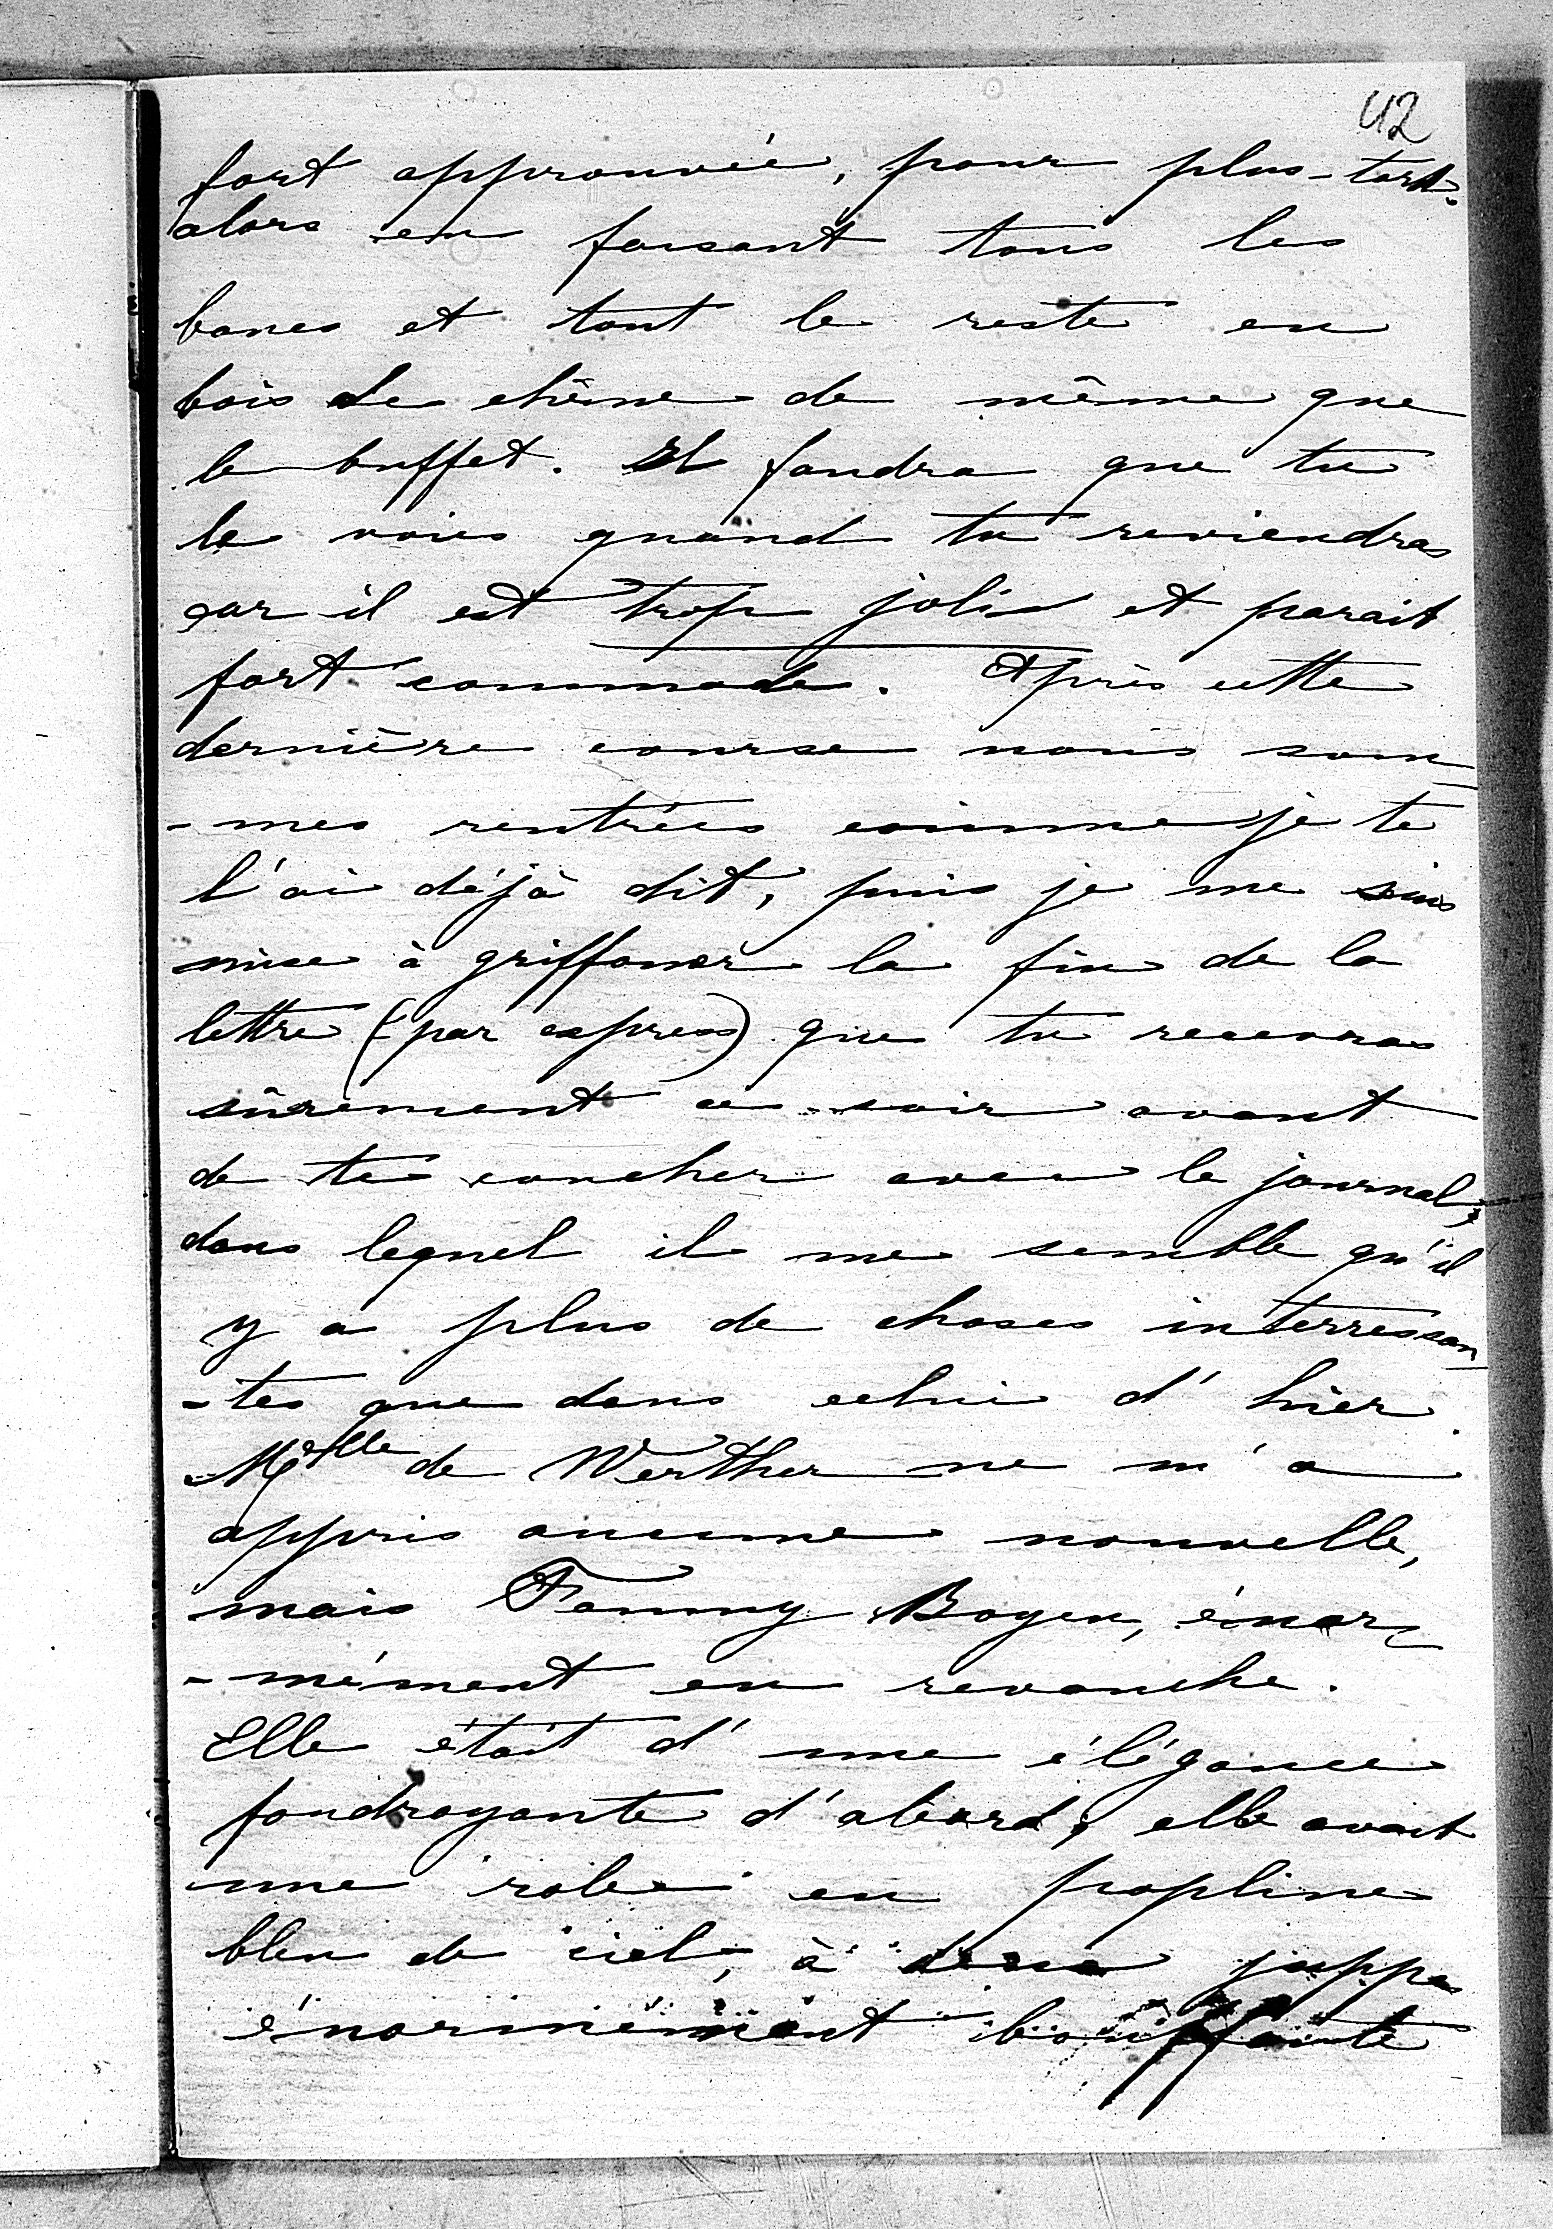 42
fort approuvée, pour plus-tard.
alors en faisant tous les
bancs et tout le reste en
bois de chêne de même que
le buffet. Il faudra que tu
le voies quand tu reviendras
car il est trop joli et parait
fort commode. Après cette
dernière course nous som-
-mes rentrées comme je te
l'ai déjà dit, puis je me suis
mise à griffoner la fin de la
lettre (par express) que tu recevras
sûrement ce soir avant
de te coucher avec le journal,
dans lequel il me semble qu'il
y a plus de choses interressan-
-tes que dans celui d'hier.
Melle de Werther ne m'a
appris aucune nouvelle,
mais Fanny Boyen, énor-
-mément en revanche.
Elle était d'une élégance
foudroyante d'abord, elle avait
une robe en popline
bleu de ciel, à juppe
énormément bouffante